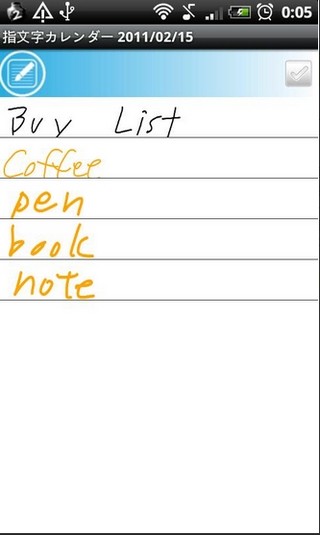 0:05
指文字カレンダー 2011/02/15
Buy List
Coffee
pen
book
note